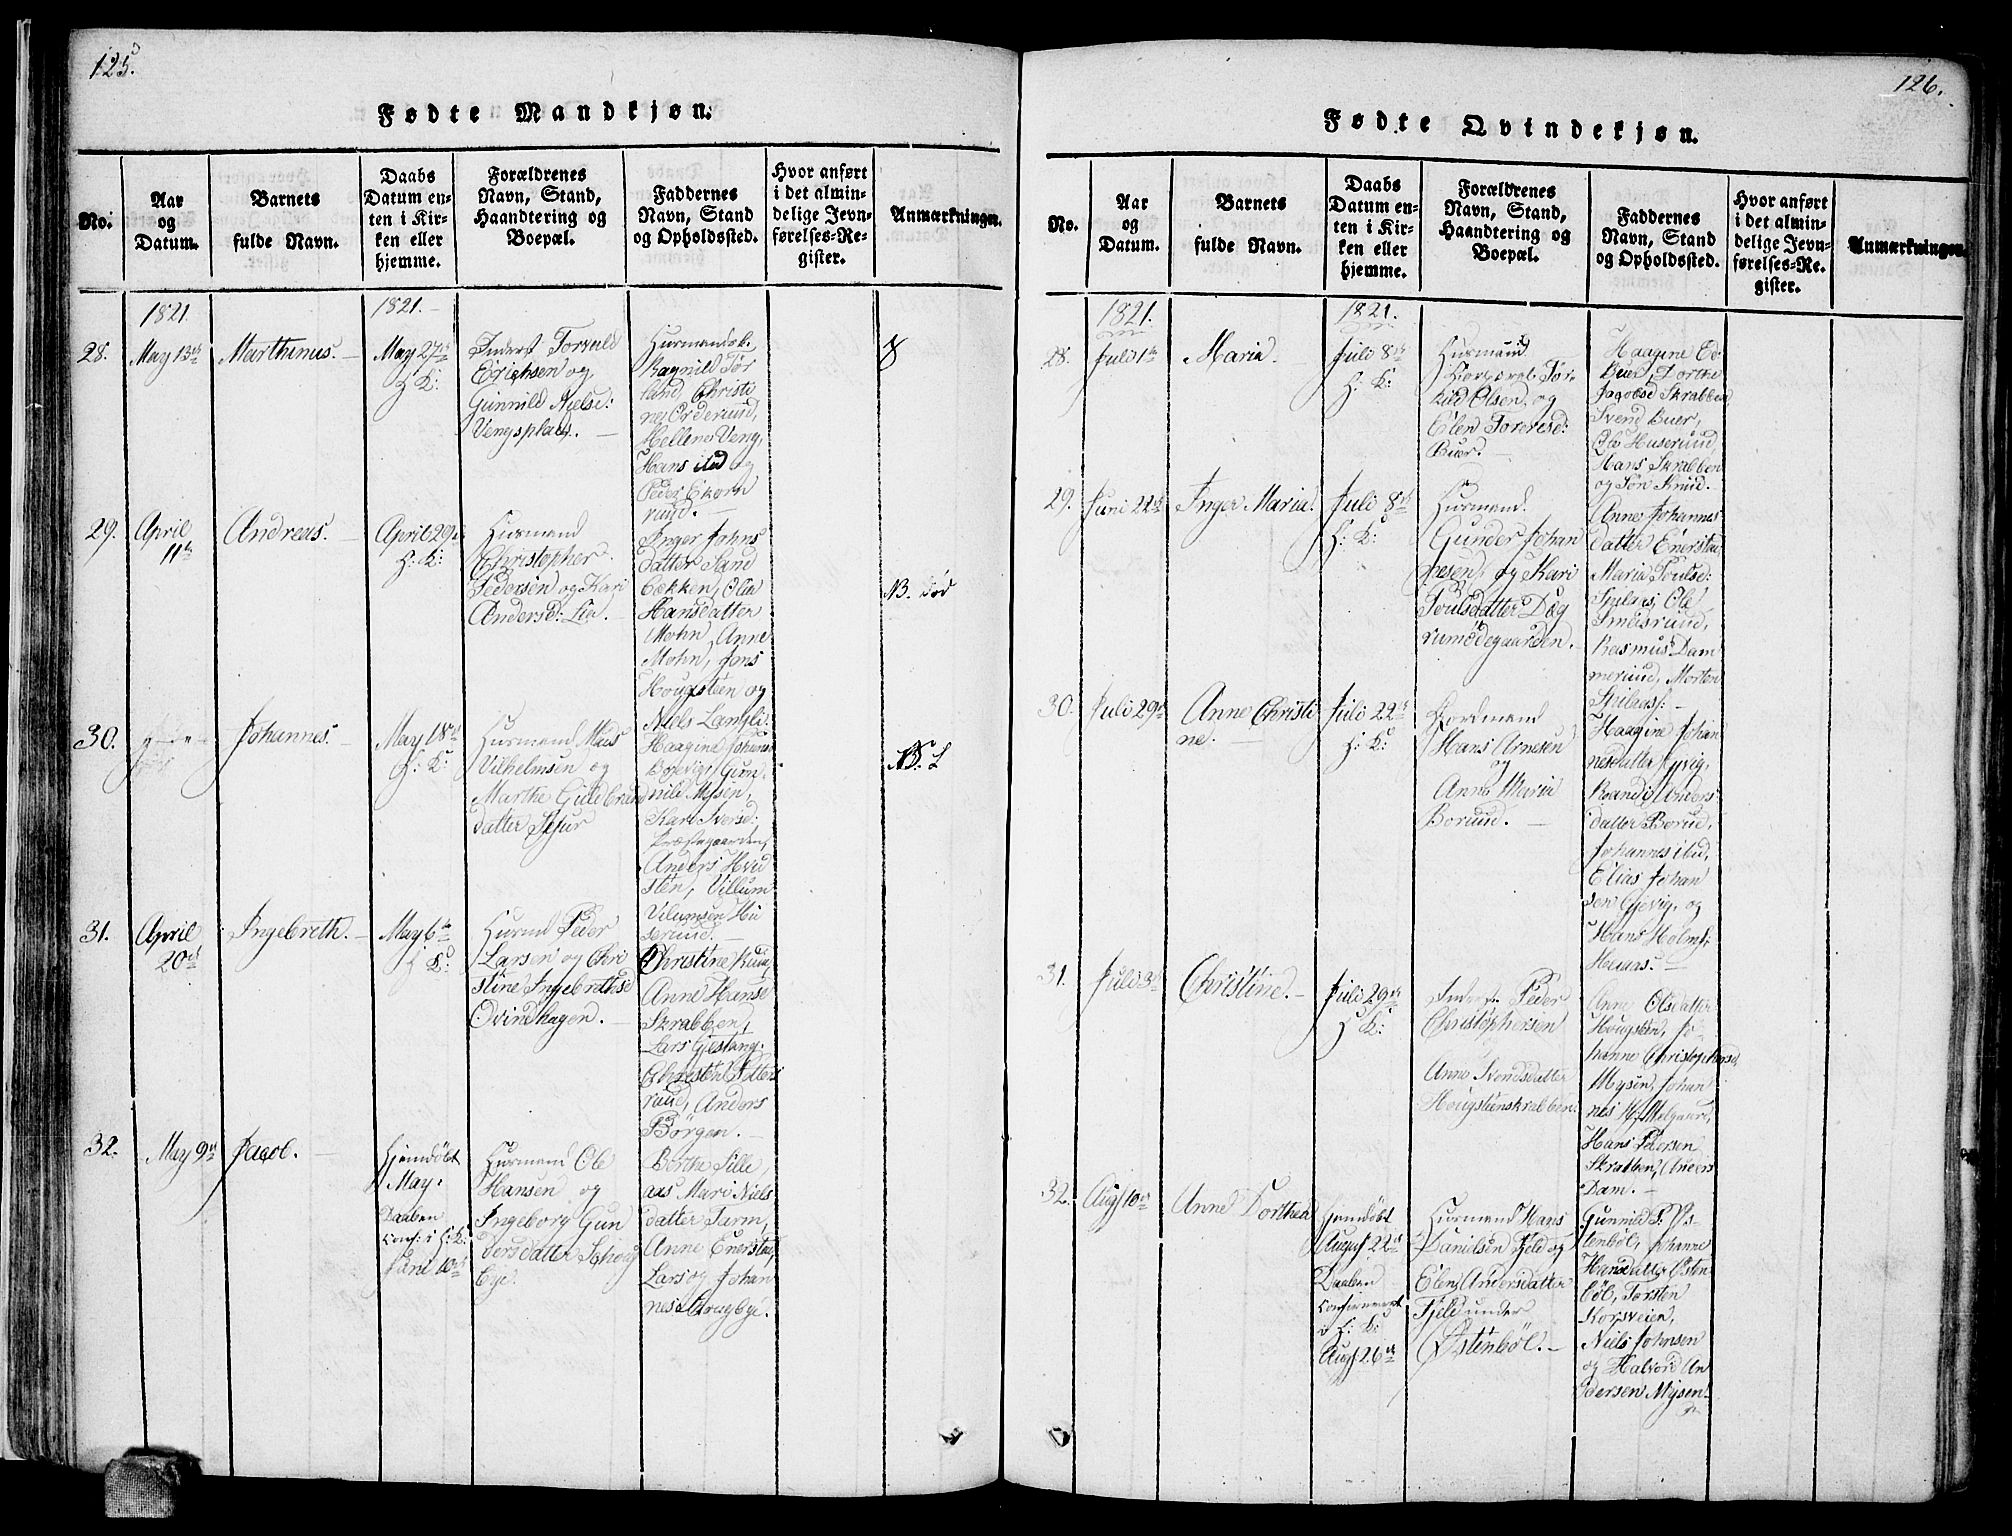 125.
Fødte Mandkjøn.
No.
Aar
og
Datum.
Barnets
fulde Navn.
Daabs
Datum en-
ten i Kir-
ken eller
hjemme.
Forældrenes
Navn, Stand,
Haandtering og
Boepæl.
Faddernes
Navn, Stand
og Opholdssted.
Hvor anført
i det almin-
delige Jevn-
førelses-Re-
gister.
Anmærkninger.
1821.
1821.
28.
May 13de
Marthinus.
May 27de
H: K:
Inderst Torvald
Erichsen og
Gunnild Nielsd:
Vengsplads.
Huusmandsk:
Ragnild Tør
land, Christi
ne Orderud,
Hellene Veng,
Hans ibid og
Peder Ekorn
rud.
8
29.
April
11te
Andreas.
April 29.
H: K:
Huusmand
Christopher
Pedersen og Kari
Andersd: Lia.
Inger Johns
datter Sand
bækken, Olia
Hansdatter
Mohn, Anne
Mohn, Jens
Hougsteen og
Niels Langli:
NB. død
30.
Johannes.
May 18de
H: K:
Huusmand Mads
Vilhelmsen og
Marthe Guldbrand
datter
Haagine Johannes
Gun
nild Mysen,
Kari Iversd:
Præstegaarden,
Anders Hvid
sten, Villum
Vilumsen Hu
serud.
NB.
31.
April
20de
Ingebreth.
May 6te
H: K:
Huusmd Peder
Larsen og Chri
stine Ingebrethsd
Ovindhagen.
Christine Ruud,
Anne Hansd
Skrabben,
Lars Gjestang,
Christen Petters
ruud, Anders
Børgen.
32.
May 9de
Jacob.
Hjemdøbt
May.
Daaben
conf: i H: K:
Juni 10de
Huusmand Ole
Hansen og
Ingeborg Gun
dersdatter Schoug
bye.
Berthe Lille
aas Mari Niels
datter Tarm,
Anne Enerstau,
Lars og Johan
nes Grugbye.
126.
Fødte Qvindekjøn.
No.
Aar
og
Datum.
Barnets
fulde Navn.
Daabs
Datum en-
ten i Kir-
ken eller
hjemme.
Forældrenes
Navn, Stand,
Haandtering og
Boepæl.
Faddernes
Navn, Stand
og Opholdssted.
Hvor anført
i det almin-
delige Jevn-
førelses-Re-
gister.
Anmærkninger.
1821.
1821.
28.
Juli 1te
Maria.
Juli 8de
H: K:
Huusmand
Tør
kild Olsen, og
Elen Torersd:
Buer.
Haagine Ed:
Buer, Dorthe
Jacobsd Skrabben
Svend Buer,
Ole Huserud,
Hans Skrabben
og Søn Knud.
29.
Juni 22de
Inger Maria.
Juli 8de
H: K:
Huusmand
Gunder Johan
nesen, og Kari
Poulsdatter Dag
rumødegaarden.
Anne Johannes
datter Enerstau,
Maria Poulsd:
Spilass, Ole
Smedsrud,
Rasmus Dam
merud, Morten
Spilass:
30.
Juli 29de
Anne Christi
ne.
Juli 22de
H: K:
Gordmand
Hans Arnesen
og
Anne Maria
Borud.
Haagine Johan
nesdatter Gjevig,
Randi Anders
datter Borud,
Johannes ibid,
Elias Johan
sen Gjevig, og
Hans Holms:
31.
Juli 3de
Christine.
Juli 29de
H: K:
Inderst Peder
Christophersen
Anne Svendsdatter
Hougsteenskrabben.
Anne Olsdatter
Hougsteen, Jo-
hanne Christophersd
Mysen, Johan
nes
Hans Pedersen
Skrabben, Anders
Dam.
32.
Aug 10de
Anne Dorthea
Hjemdøbt
August 22de
Daaben
confirmeret
i H: K:
Aug 26de
Huusmand Hans
Danielsen Fjeld og
Elen Andersdatter
Fjeld under
Østenbøl.
Gunnild P: Øs-
tenbøl, Johanne
Hansdatter Østen
bøl, Torsten
Korsveien,
Niels Johnsen
og Halvord An
dersen Mysen.